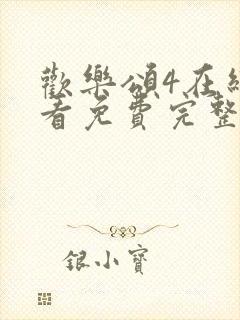 歡樂頌4在線
看免費完整
銀小寶